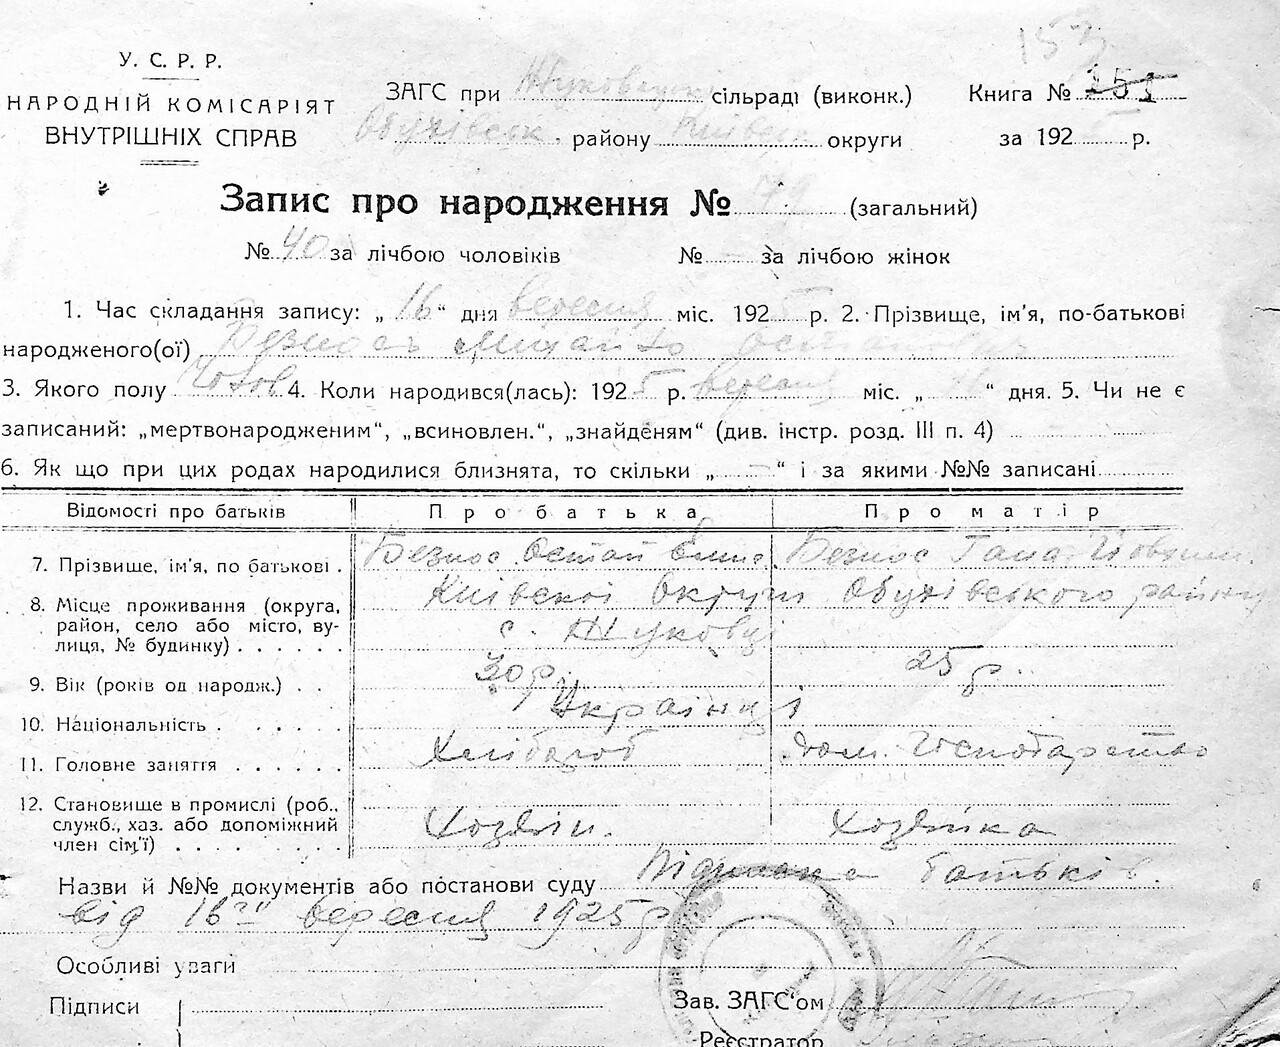 153
У. С. Р. Р.
НАРОДНІЙ КОМІСАРІЯТ
ВНУТРІШНІХ СПРАВ
ЗАГС при сільраді (виконк.) Книга № 151
Обухівськ. району Київськ округи за 192 р.
Запис про народження № 79 (загальний)
№ 40 за лічбою чоловіків № — за лічбою жінок
1. Час складання запису: „ 16 “ дня вересня міс. 1925 р. 2. Прізвище, ім'я, по-батькові
народженого(ої) Безнос Михайло Остапович
3. Якого полу чолов 4. Коли народився(лась): 1925 р. вересня міс. „ “ дня. 5. Чи не є
записаний: „мертвонародженим“, „всиновлен.“, „знайденям“ (див. інстр. розд. III п. 4)
6. Як що при цих родах народилися близнята, то скільки „ — “ і за якими №№ записані
Відомості про батьків Про батька Про матір
7. Прізвище, ім'я, по батькові . Безнос Остап Безнос Гана
8. Місце проживання (округа, Київскої Округи Обухівського району
район, село або місто, ву-
лиця, № будинку) . . . . . . с. Жуковці
9. Вік (років од народж.) . . 30 р. 25 р.
10. Національність . . . . . . Українці
11. Головне заняття . . . . . . Хлібороб дом. Господарство
12. Становище в промислі (роб.,
служб., хаз. або допоміжний Хозяїн. Хозяйка
член сім'ї) . . . . . . . .
Назви й №№ документів або постанови суду батьків.
від 16го вересня 1925 р
Особливі уваги
Підписи Зав. ЗАГС'ом
Реєстратор